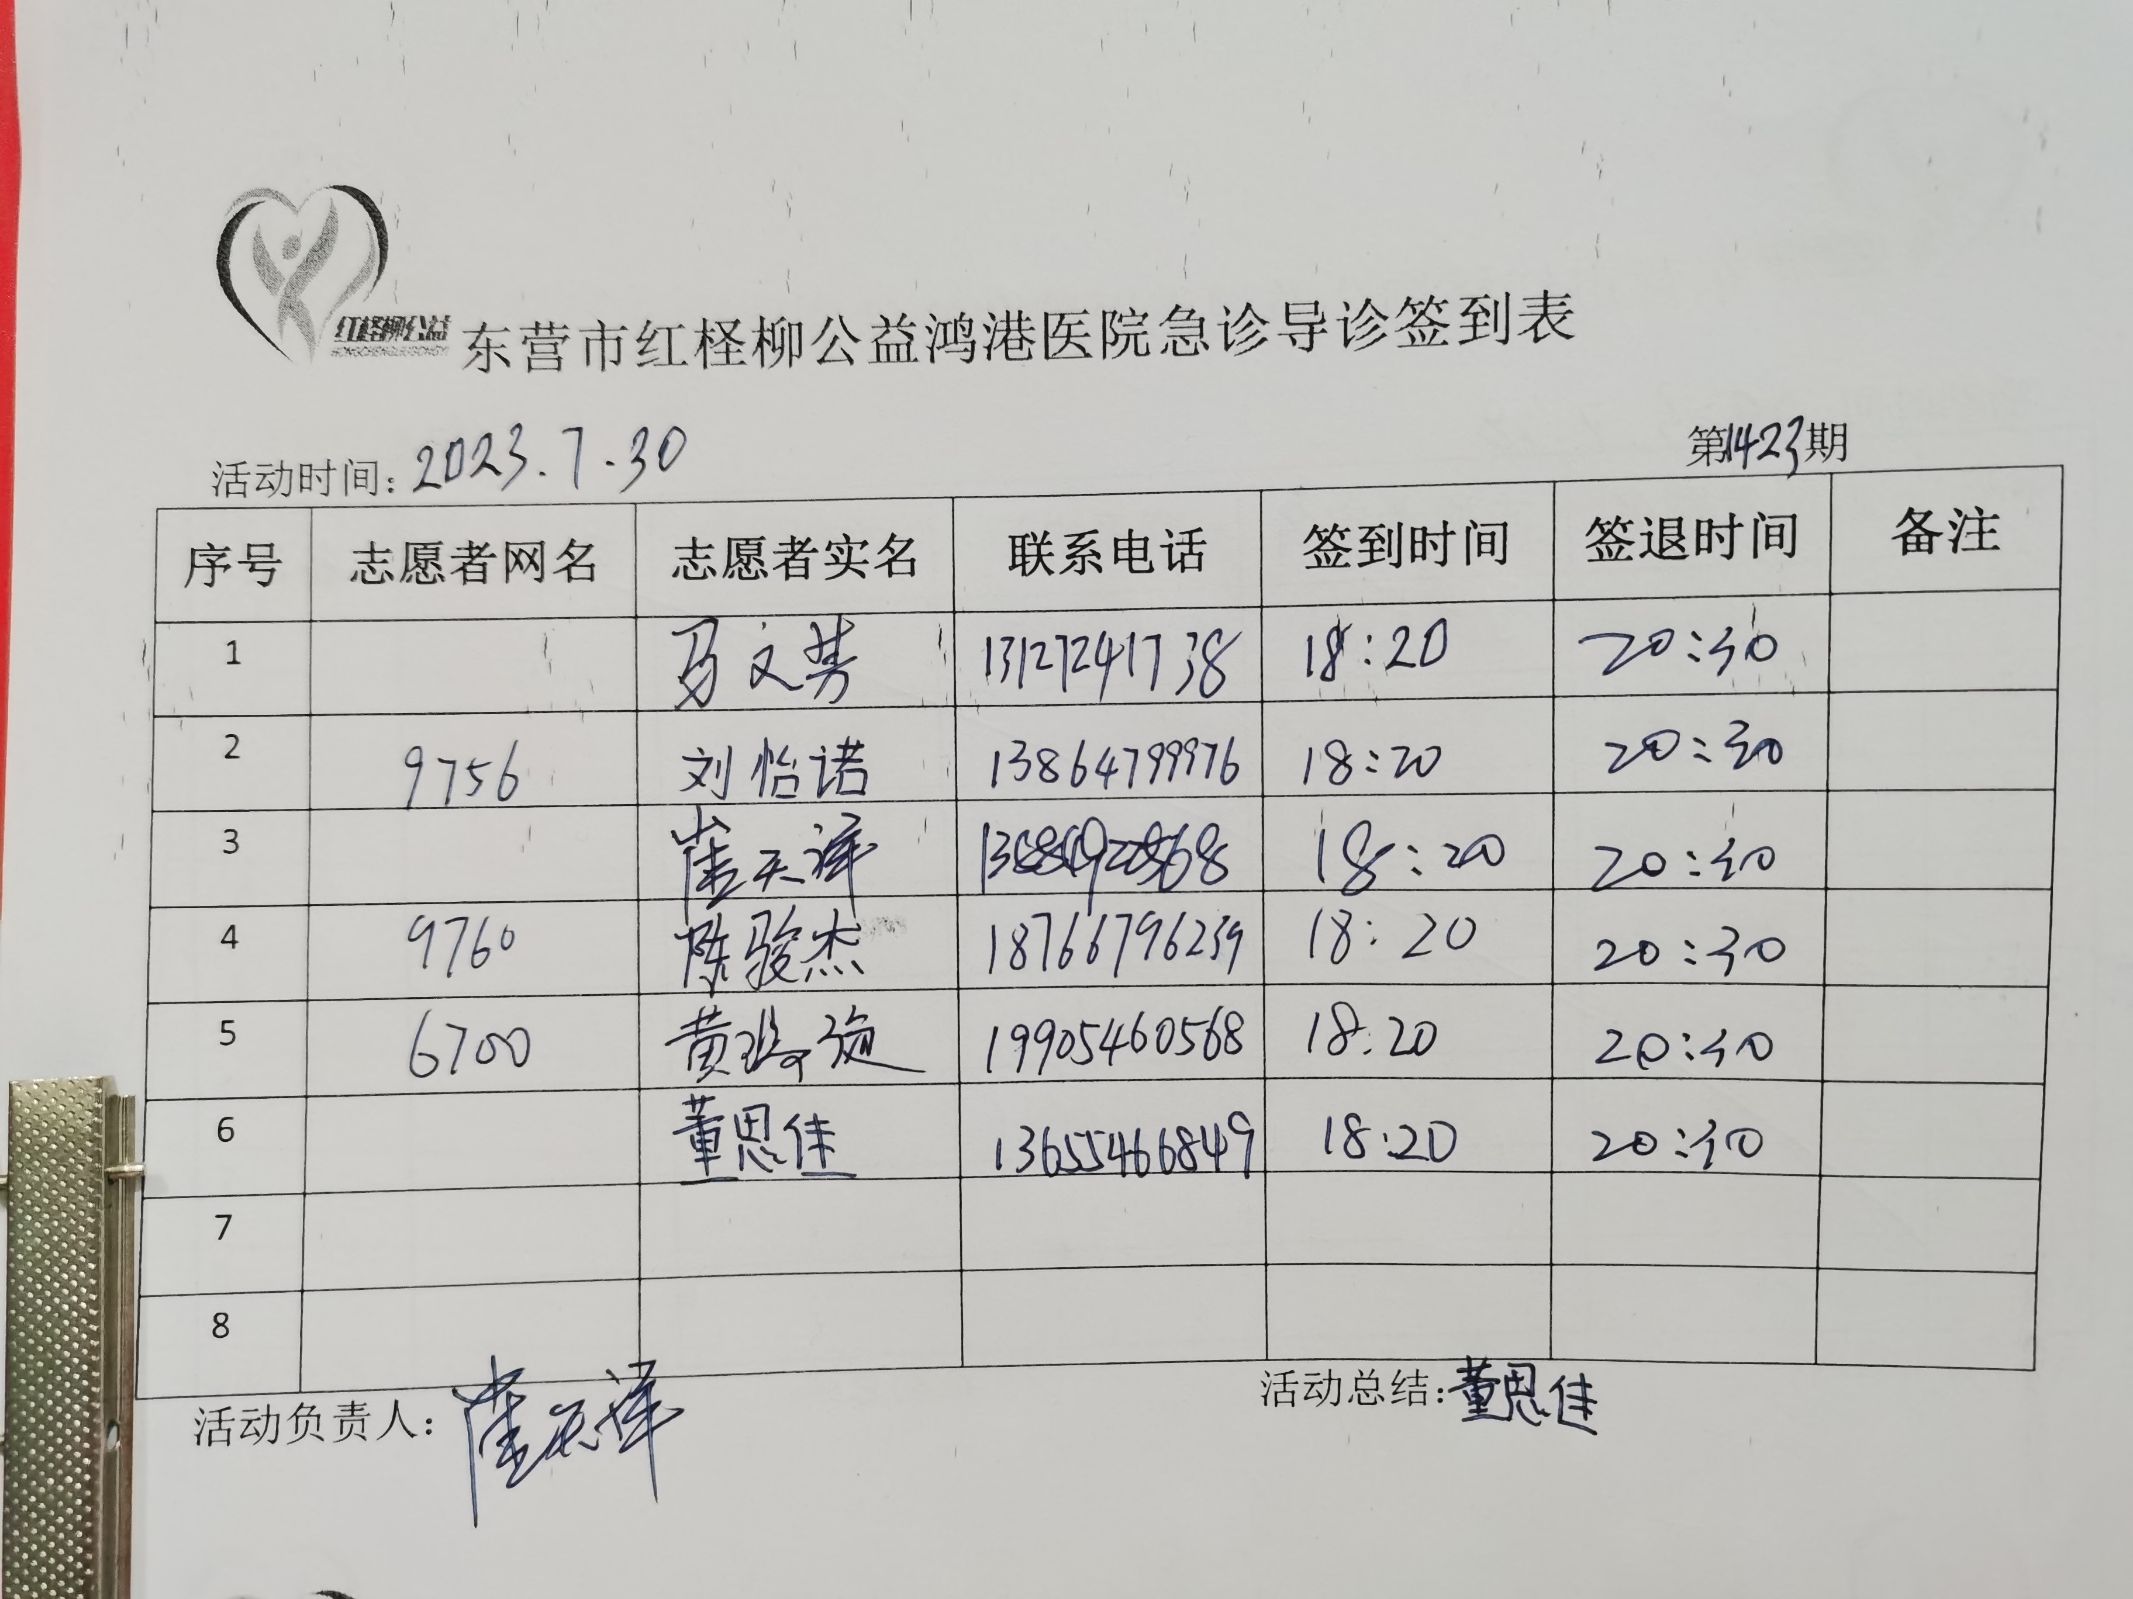 红柽柳公益
东营市红柽柳公益鸿港医院急诊导诊签到表
活动时间：2023.7.30
第1423期
序号 志愿者网名 志愿者实名 联系电话 签到时间 签退时间 备注
1 马文 13127241738 18:20 20:30
2 9756 刘怡诺 13864799976 18:20 20:30
3 崔天泽 18:20 20:30
4 9760 陈骏杰 18766796239 18:20 20:30
5 6700 黄 19905460568 18:20 20:30
6 董思佳 13655466849 18:20 20:30
7
8
活动负责人：崔天泽
活动总结：董思佳